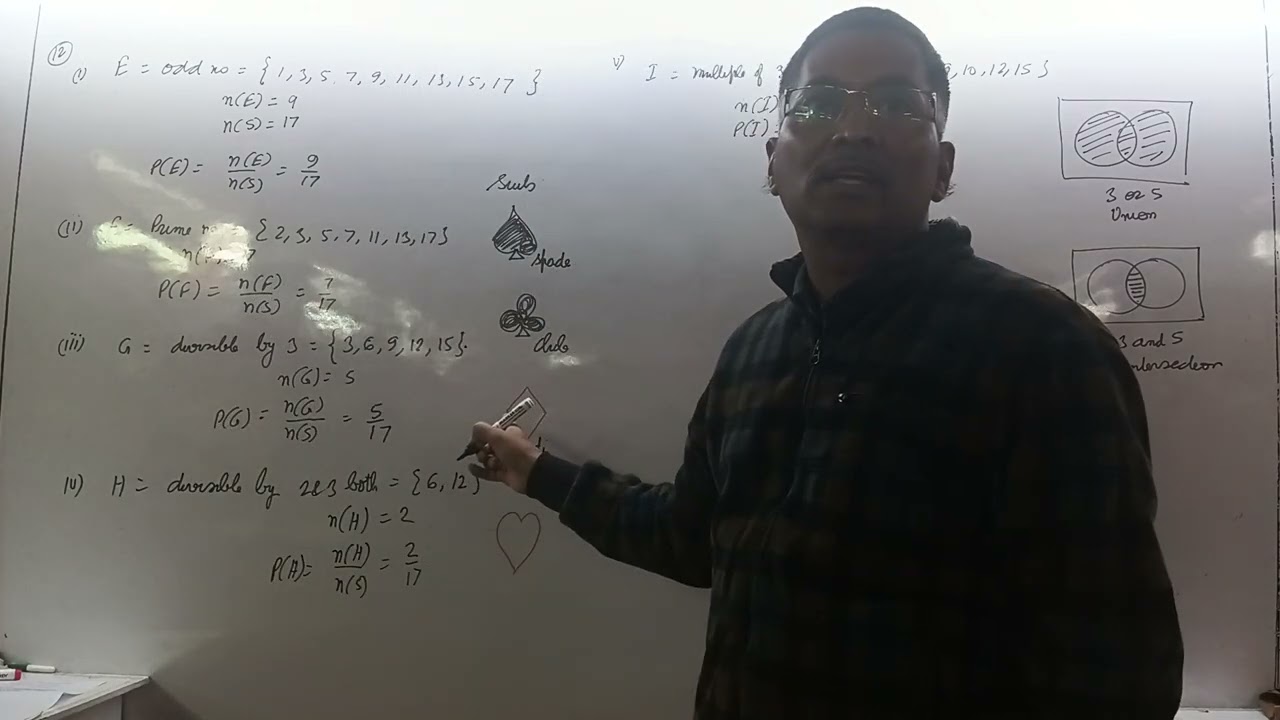 12
(i) E = odd no = { 1, 3, 5, 7, 9, 11, 13, 15, 17 }
n(E) = 9
n(S) = 17
P(E) = n(E)/n(S) = 9/17
(ii) Prime = { 2, 3, 5, 7, 11, 13, 17 }
7
P(F) = n(F)/n(S) = 7/17
(iii) G = divisible by 3 = { 3, 6, 9, 12, 15 }.
n(G) = 5
P(G) = n(G)/n(S) = 5/17
iv) H = divisible by 2&3 both = { 6, 12 }
n(H) = 2
P(H) = n(H)/n(S) = 2/17
Suits
Spade
Club
v) I = multiple of 3 9, 10, 12, 15 }
n(I)
P(I) =
3 or 5
Union
3 and 5
Intersection